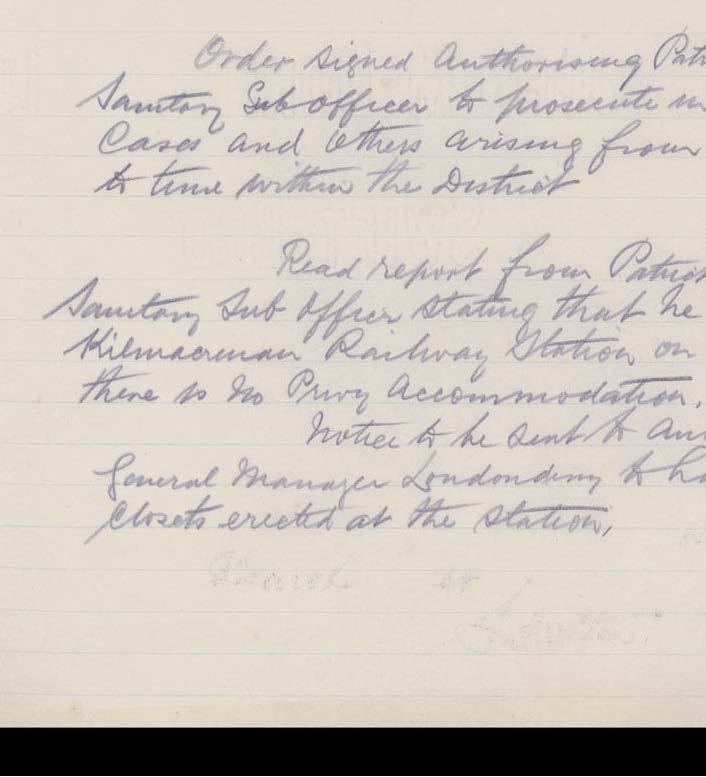 Order signed Authorising Pat
Sanitary Sub officer to prosecute in
Cases and others arising from
to time within the District
Read report from Patrick
Sanitary Sub Officer stating that he
Kilmacrenan Railway Station on
there is no Privy Accommodation.
Notice to be sent to
General Manager Londonderry to ha
Closets erected at the station,